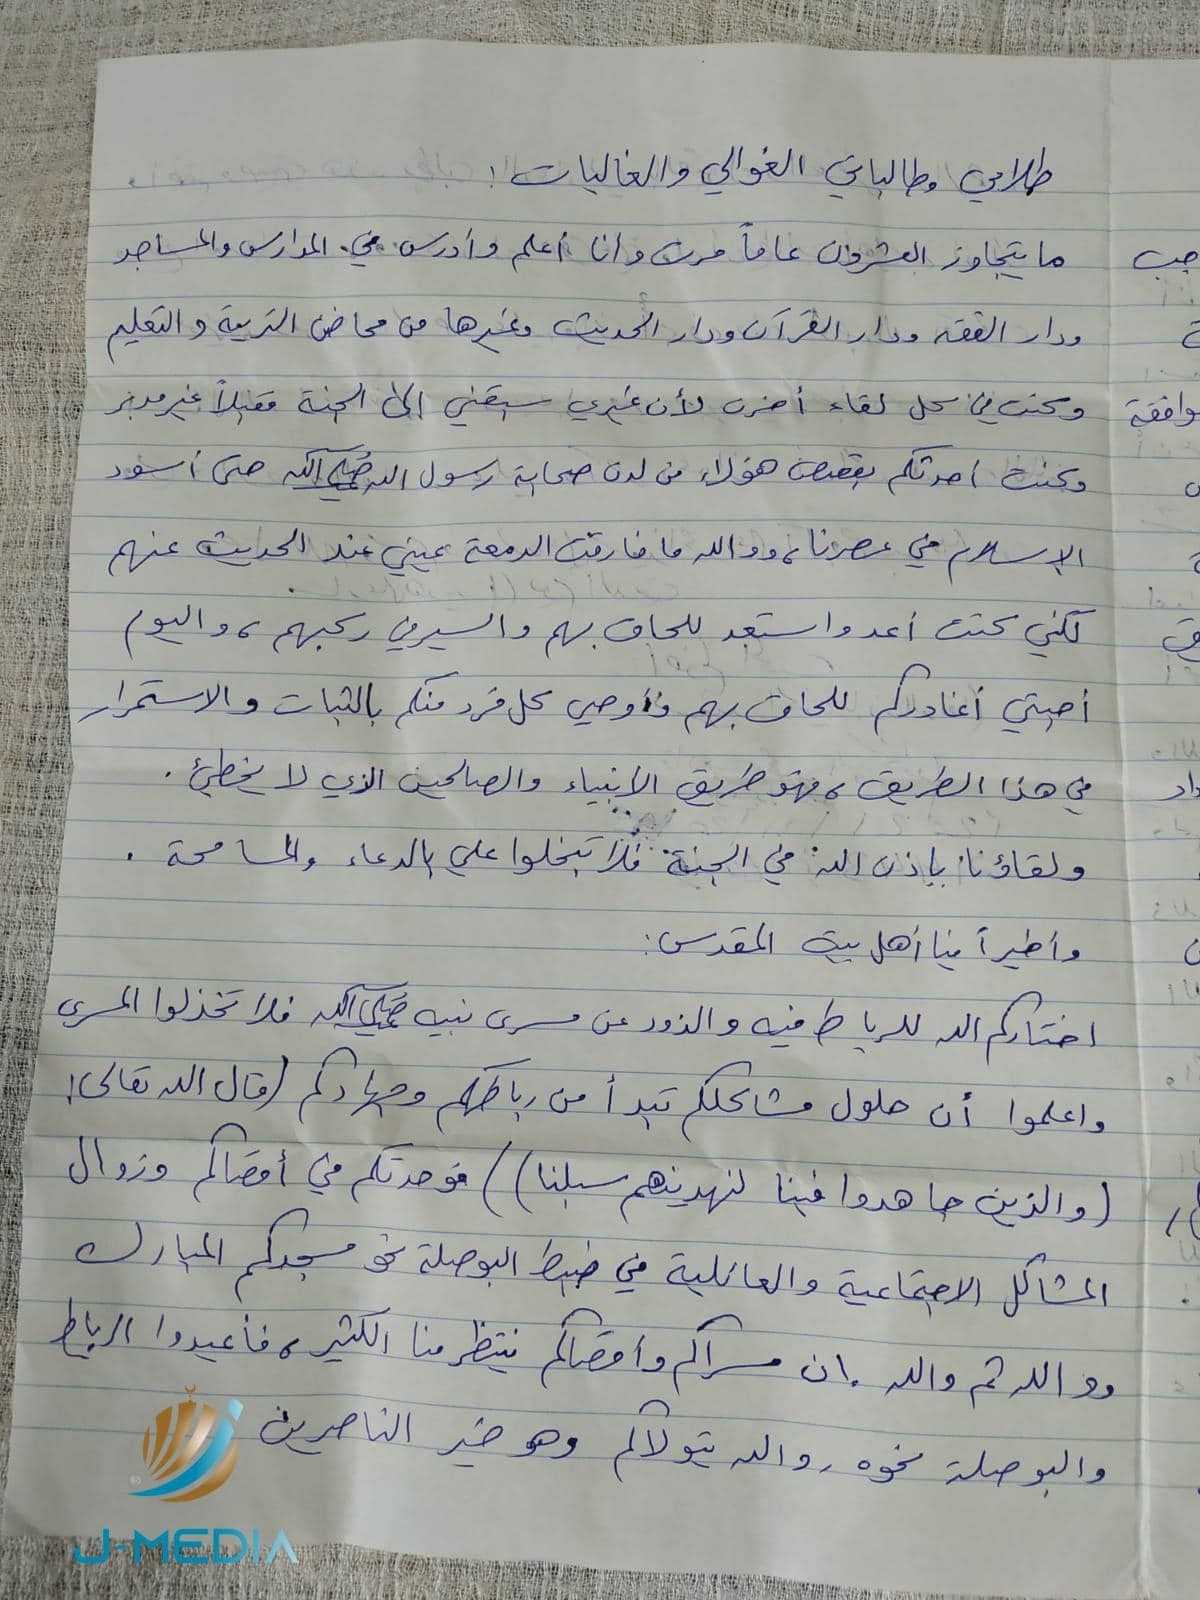 طلابي وطالباتي الغوالي والغاليات:
ما يتجاوز العشرون عاماً مرت وأنا أعلم وأدرس في المدارس والمساجد
ودار الفقه ودار القرآن ودار الحديث وغيرها من محاضن التربية والتعليم
وكنت في كل لقاء أحزن لأن غيري سبقني إلى الجنة مقبلاً غير مدبر
وكنت احدثكم بقصص هؤلاء من لدن صحابة رسول الله ﷺ حتى أسود
الإسلام في عصرنا، ووالله ما فارقت الدمعة عيني عند الحديث عنهم
لكني كنت أعد واستعد للحاق بهم والسير في ركبهم، واليوم
أحبتي أغادركم للحاق بهم فأوصي كل فرد منكم بالثبات والاستمرار
في هذا الطريق، فهو طريق الأنبياء والصالحين الذي لا يخطئ.
ولقاؤنا بإذن الله في الجنة فلا تبخلوا علي بالدعاء والمسامحة.
وأخيراً يا أهل بيت المقدس:
اختاركم الله للرباط فيه والذود عن مسرى نبيه ﷺ فلا تخذلوا المسرى
واعلموا أن حلول مشاكلكم تبدأ من رباطكم وجهادكم (قال الله تعالى:
(والذين جاهدوا فينا لنهدينهم سبلنا)) فوحدتكم في أقصاكم وزوال
المشاكل الاجتماعية والعائلية في ضبط البوصلة نحو مسجدكم المبارك
ووالله ثم والله إن مسراكم وأقصاكم ينتظر منا الكثير، فأعيدوا الرباط
والبوصلة نحوه، والله يتولاكم وهو خير الناصرين
J-MEDIA